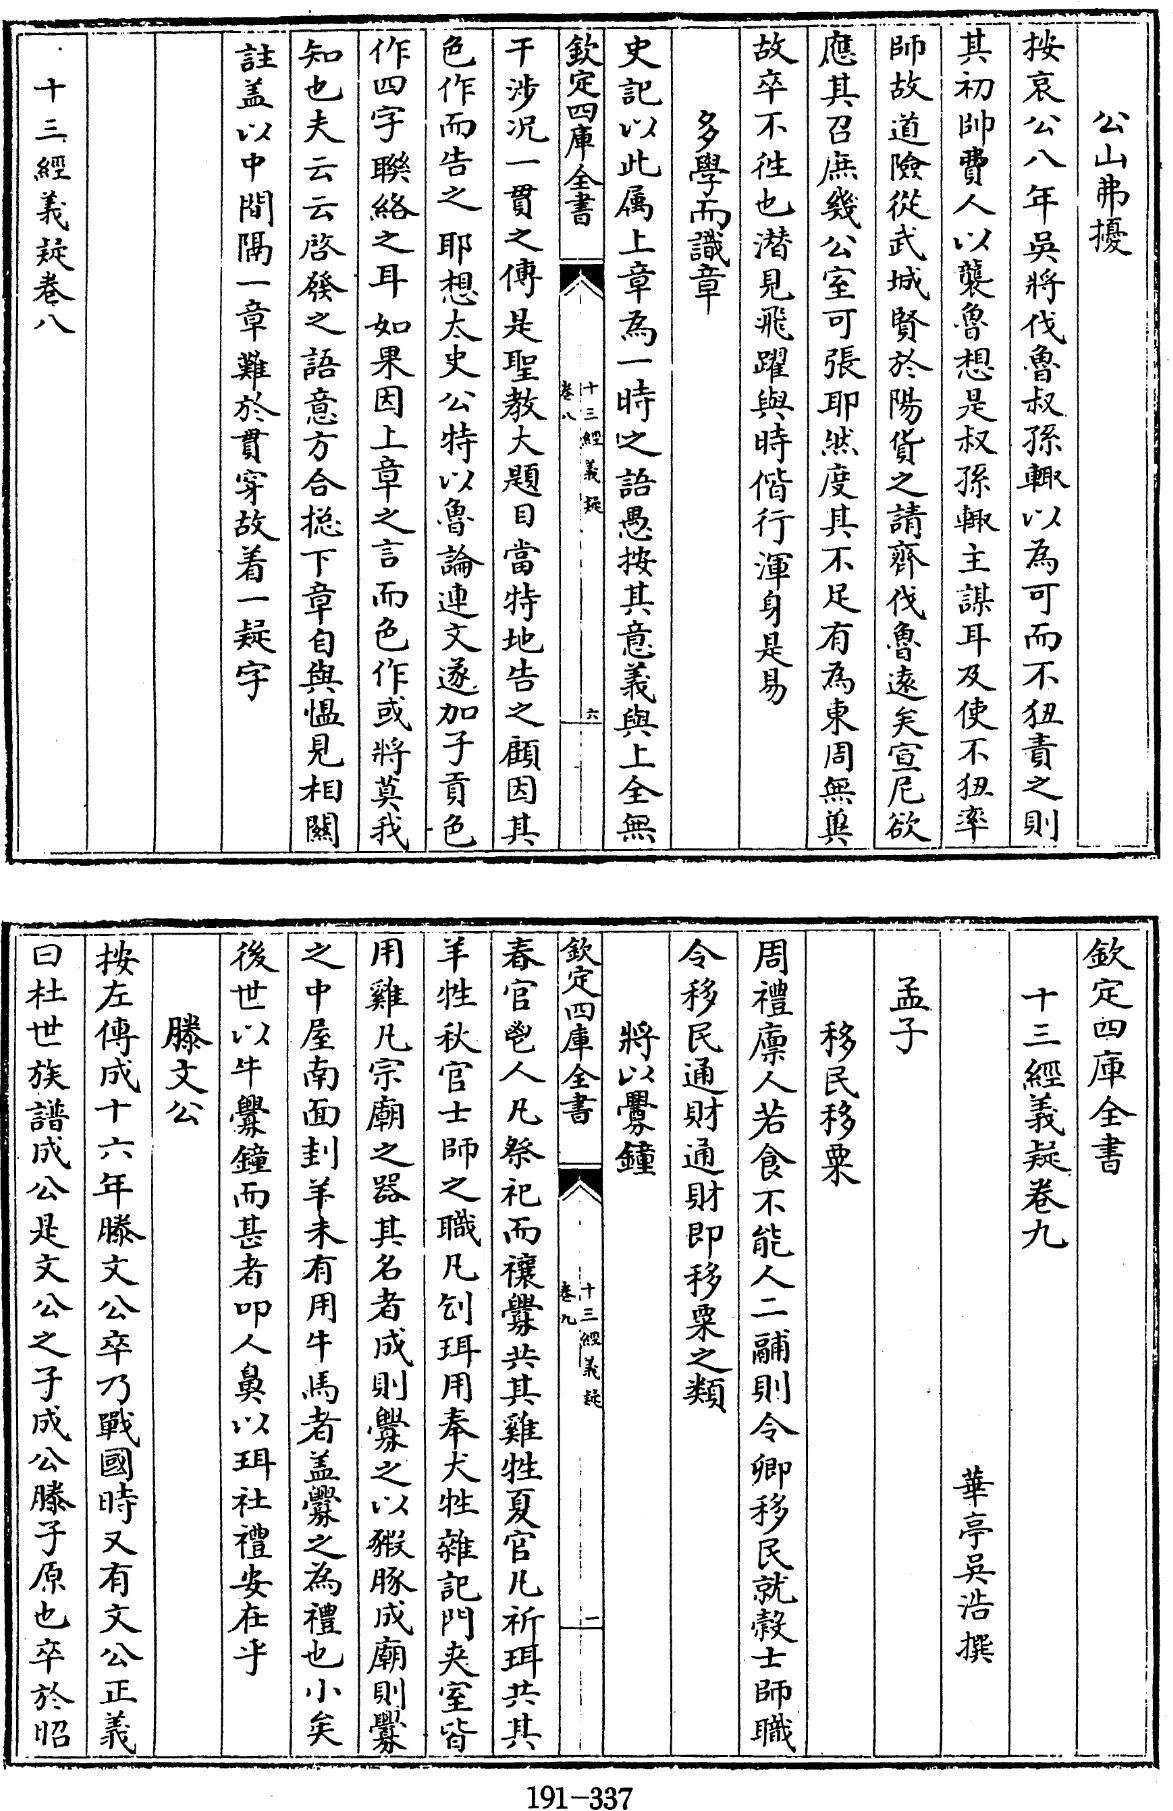 公山弗擾
按哀公八年吳將伐魯叔孫輙以為可而不狃責之則
其初帥費人以襲魯想是叔孫輙主謀耳及使不狃率
師故道險從武城賢於陽貨之請齊伐魯遠矣宣尼欲
應其召庶幾公室可張耶然度其不足有為東周無與
故卒不徃也潜見飛躍與時偕行渾身是易
多學而識章
史記以此属上章為一時之語愚按其意義與上全無
欽定四庫全書
十三經義疑
卷八
六
干涉况一貫之傳是聖教大題目當特地告之顧因其
色作而告之耶想太史公特以魯論連文遂加子貢色
作四字聯絡之耳如果因上章之言而色作或將莫我
知也夫云云啓發之語意方合揔下章自與愠見相關
註盖以中間隔一章難於貫穿故着一疑字
十三經義疑卷八
欽定四庫全書
十三經義疑卷九
華亭吳浩撰
孟子
移民移粟
周禮廩人若食不能人二鬴則令卿移民就穀士師職
令移民通財通財即移粟之類
將以釁鐘
欽定四庫全書
十三經義疑
卷九
一
春官鬯人凡祭祀而禳釁共其雞牲夏官凡祈珥共其
羊牲秋官士師之職凡刉珥用奉犬牲雜記門夾室皆
用雞凡宗廟之器其名者成則釁之以豭豚成廟則釁
之中屋南面刲羊未有用牛馬者盖釁之為禮也小矣
後世以牛釁鐘而甚者叩人鼻以珥社禮安在乎
滕文公
按左傳成十六年滕文公卒乃戰國時又有文公正義
曰杜世族譜成公是文公之子成公滕子原也卒於昭
191-337